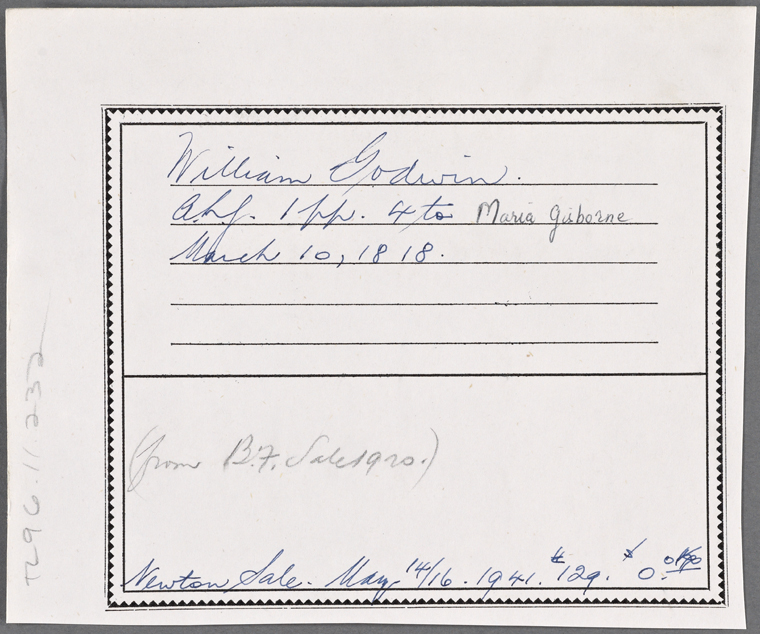 William Godwin.
1 pp. 4to Maria Gisborne
March 10, 1818.
(from B.F. Sale 1920.)
Newton Sale. May 14/16. 1941. #129. $ 0.
TL96.11.232